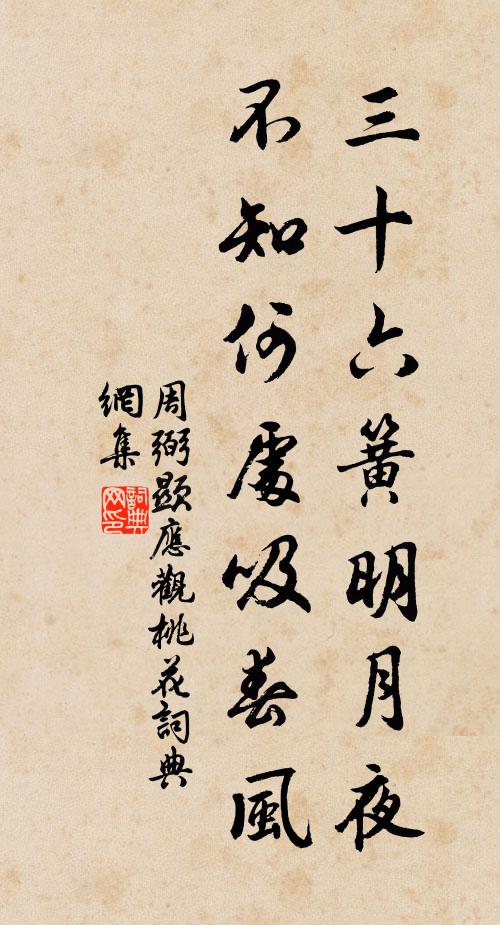 三十六簧明月夜
不知何處吸春風
周弼顯應觀桃花詞典
網集
詞典
网印